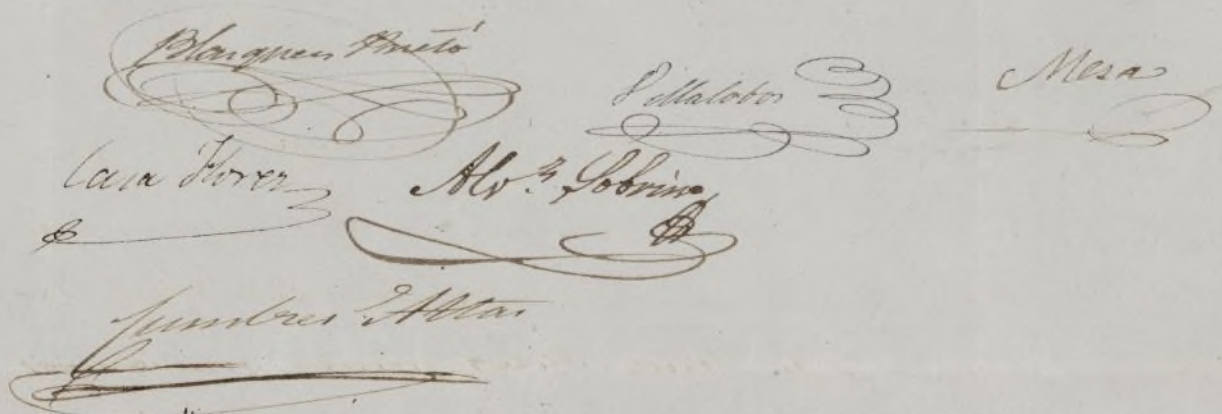 Blazquez Prieto Villalobos Mesa
Casa Florez Alv.z Sobrino
Cumbres Altas